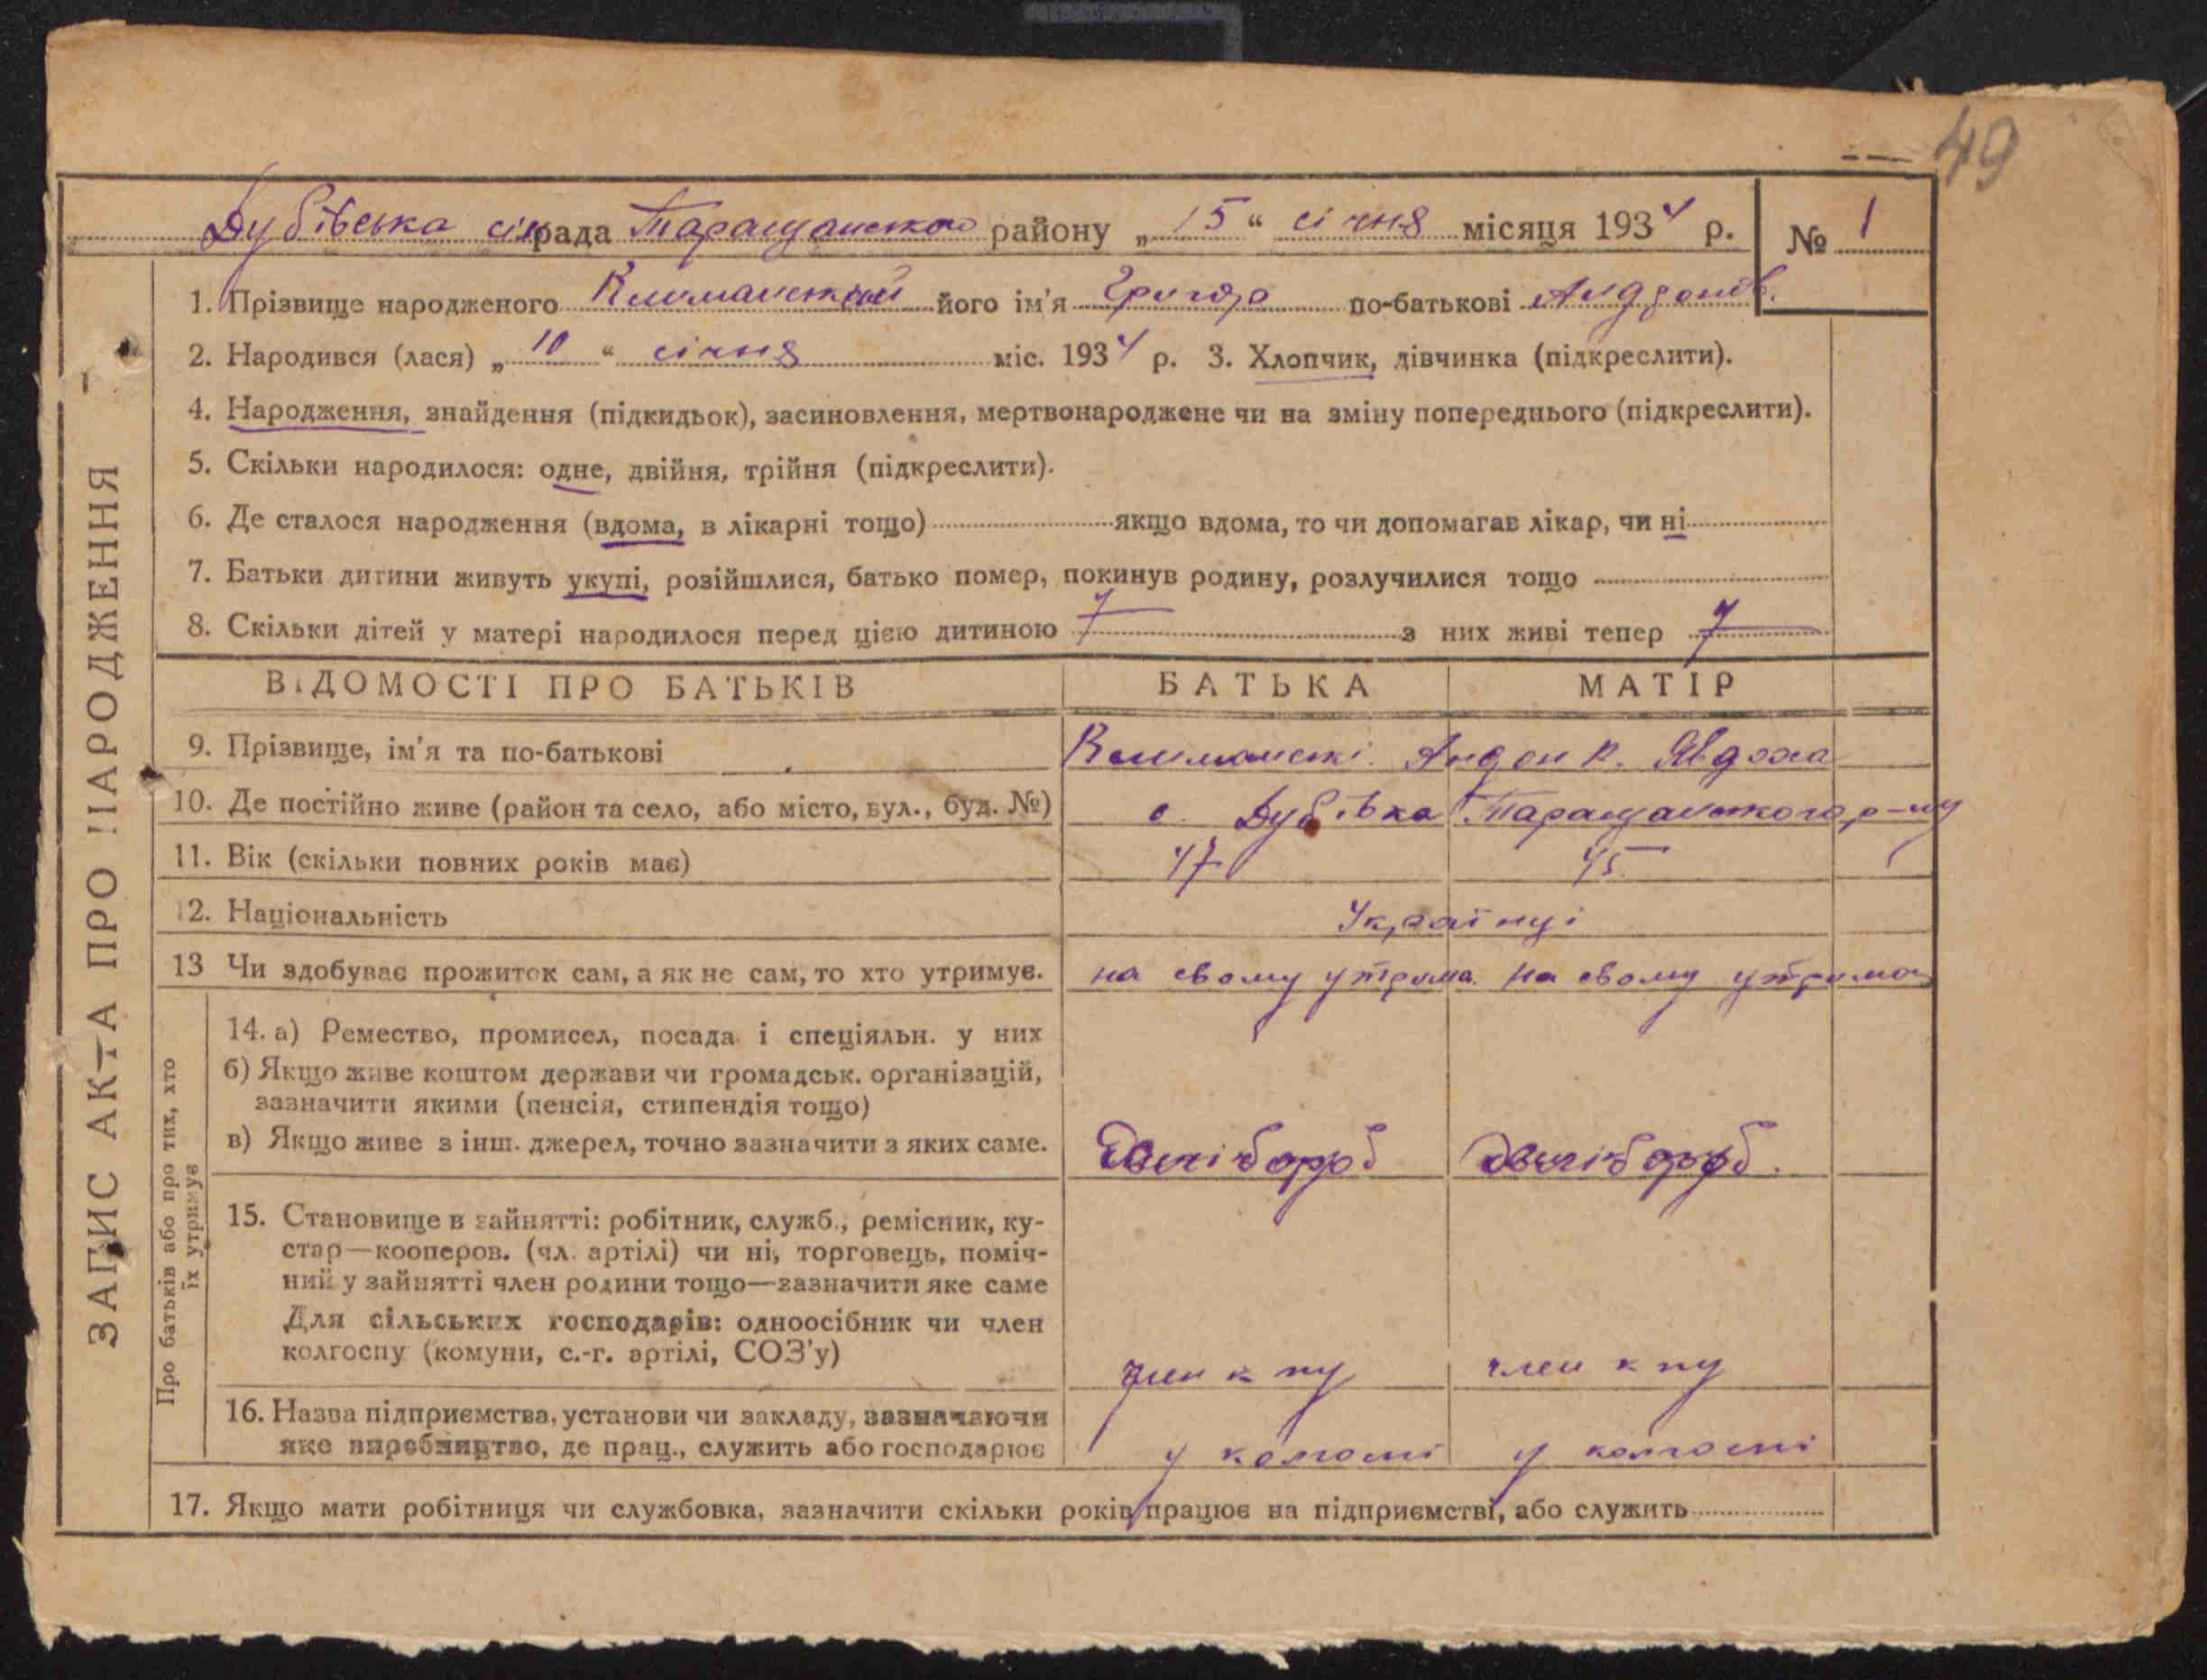 49
Дубівська сільрада Таращанського району „15“ січня місяця 1934 р. № 1
1. Прізвище народженого Климанский його ім'я Григор по-батькові Андронов.
2. Народився (лася) „10“ січня міс. 1934 р. 3. Хлопчик, дівчинка (підкреслити).
4. Народження, знайдення (підкидьок), засиновлення, мертвонароджене чи на зміну попереднього (підкреслити).
5. Скільки народилося: одне, двійня, трійня (підкреслити).
6. Де сталося народження (вдома, в лікарні тощо) якщо вдома, то чи допомагав лікар, чи ні
7. Батьки дитини живуть укупі, розійшлися, батько помер, покинув родину, розлучилися тощо
8. Скільки дітей у матері народилося перед цією дитиною 7 з них живі тепер 7
ВІДОМОСТІ ПРО БАТЬКІВ БАТЬКА МАТІР
9. Прізвище, ім'я та по-батькові Климанскі. Андон К. Явдоха
10. Де постійно живе (район та село, або місто, вул., буд. №) с. Дубівка Таращанського р-ну
11. Вік (скільки повних років має) 47 45
12. Національність Українці
13 Чи здобуває прожиток сам, а як не сам, то хто утримує. на свому утрима. на свому утрима
14. а) Ремество, промисел, посада і спеціяльн. у них
б) Якщо живе коштом держави чи громадськ. організацій,
зазначити якими (пенсія, стипендія тощо)
в) Якщо живе з інш. джерел, точно зазначити з яких саме. хлібороб хлібороб.
15. Становище в зайнятті: робітник, служб., ремісник, ку-
стар—кооперов. (чл. артілі) чи ні, торговець, поміч-
ний у зайнятті член родини тощо—зазначити яке саме
Для сільських господарів: одноосібник чи член
колгоспу (комуни, с.-г. артілі, СОЗ'у) член к пу член к пу
16. Назва підприємства, установи чи закладу, зазначаючи
яке виробництво, де прац., служить або господарює у колгоспі у колгоспі
17. Якщо мати робітниця чи службовка, зазначити скільки років працює на підприємстві, або служить
ЗАПИС АКТА ПРО НАРОДЖЕННЯ
Про батьків або про тих, хто
їх утримує